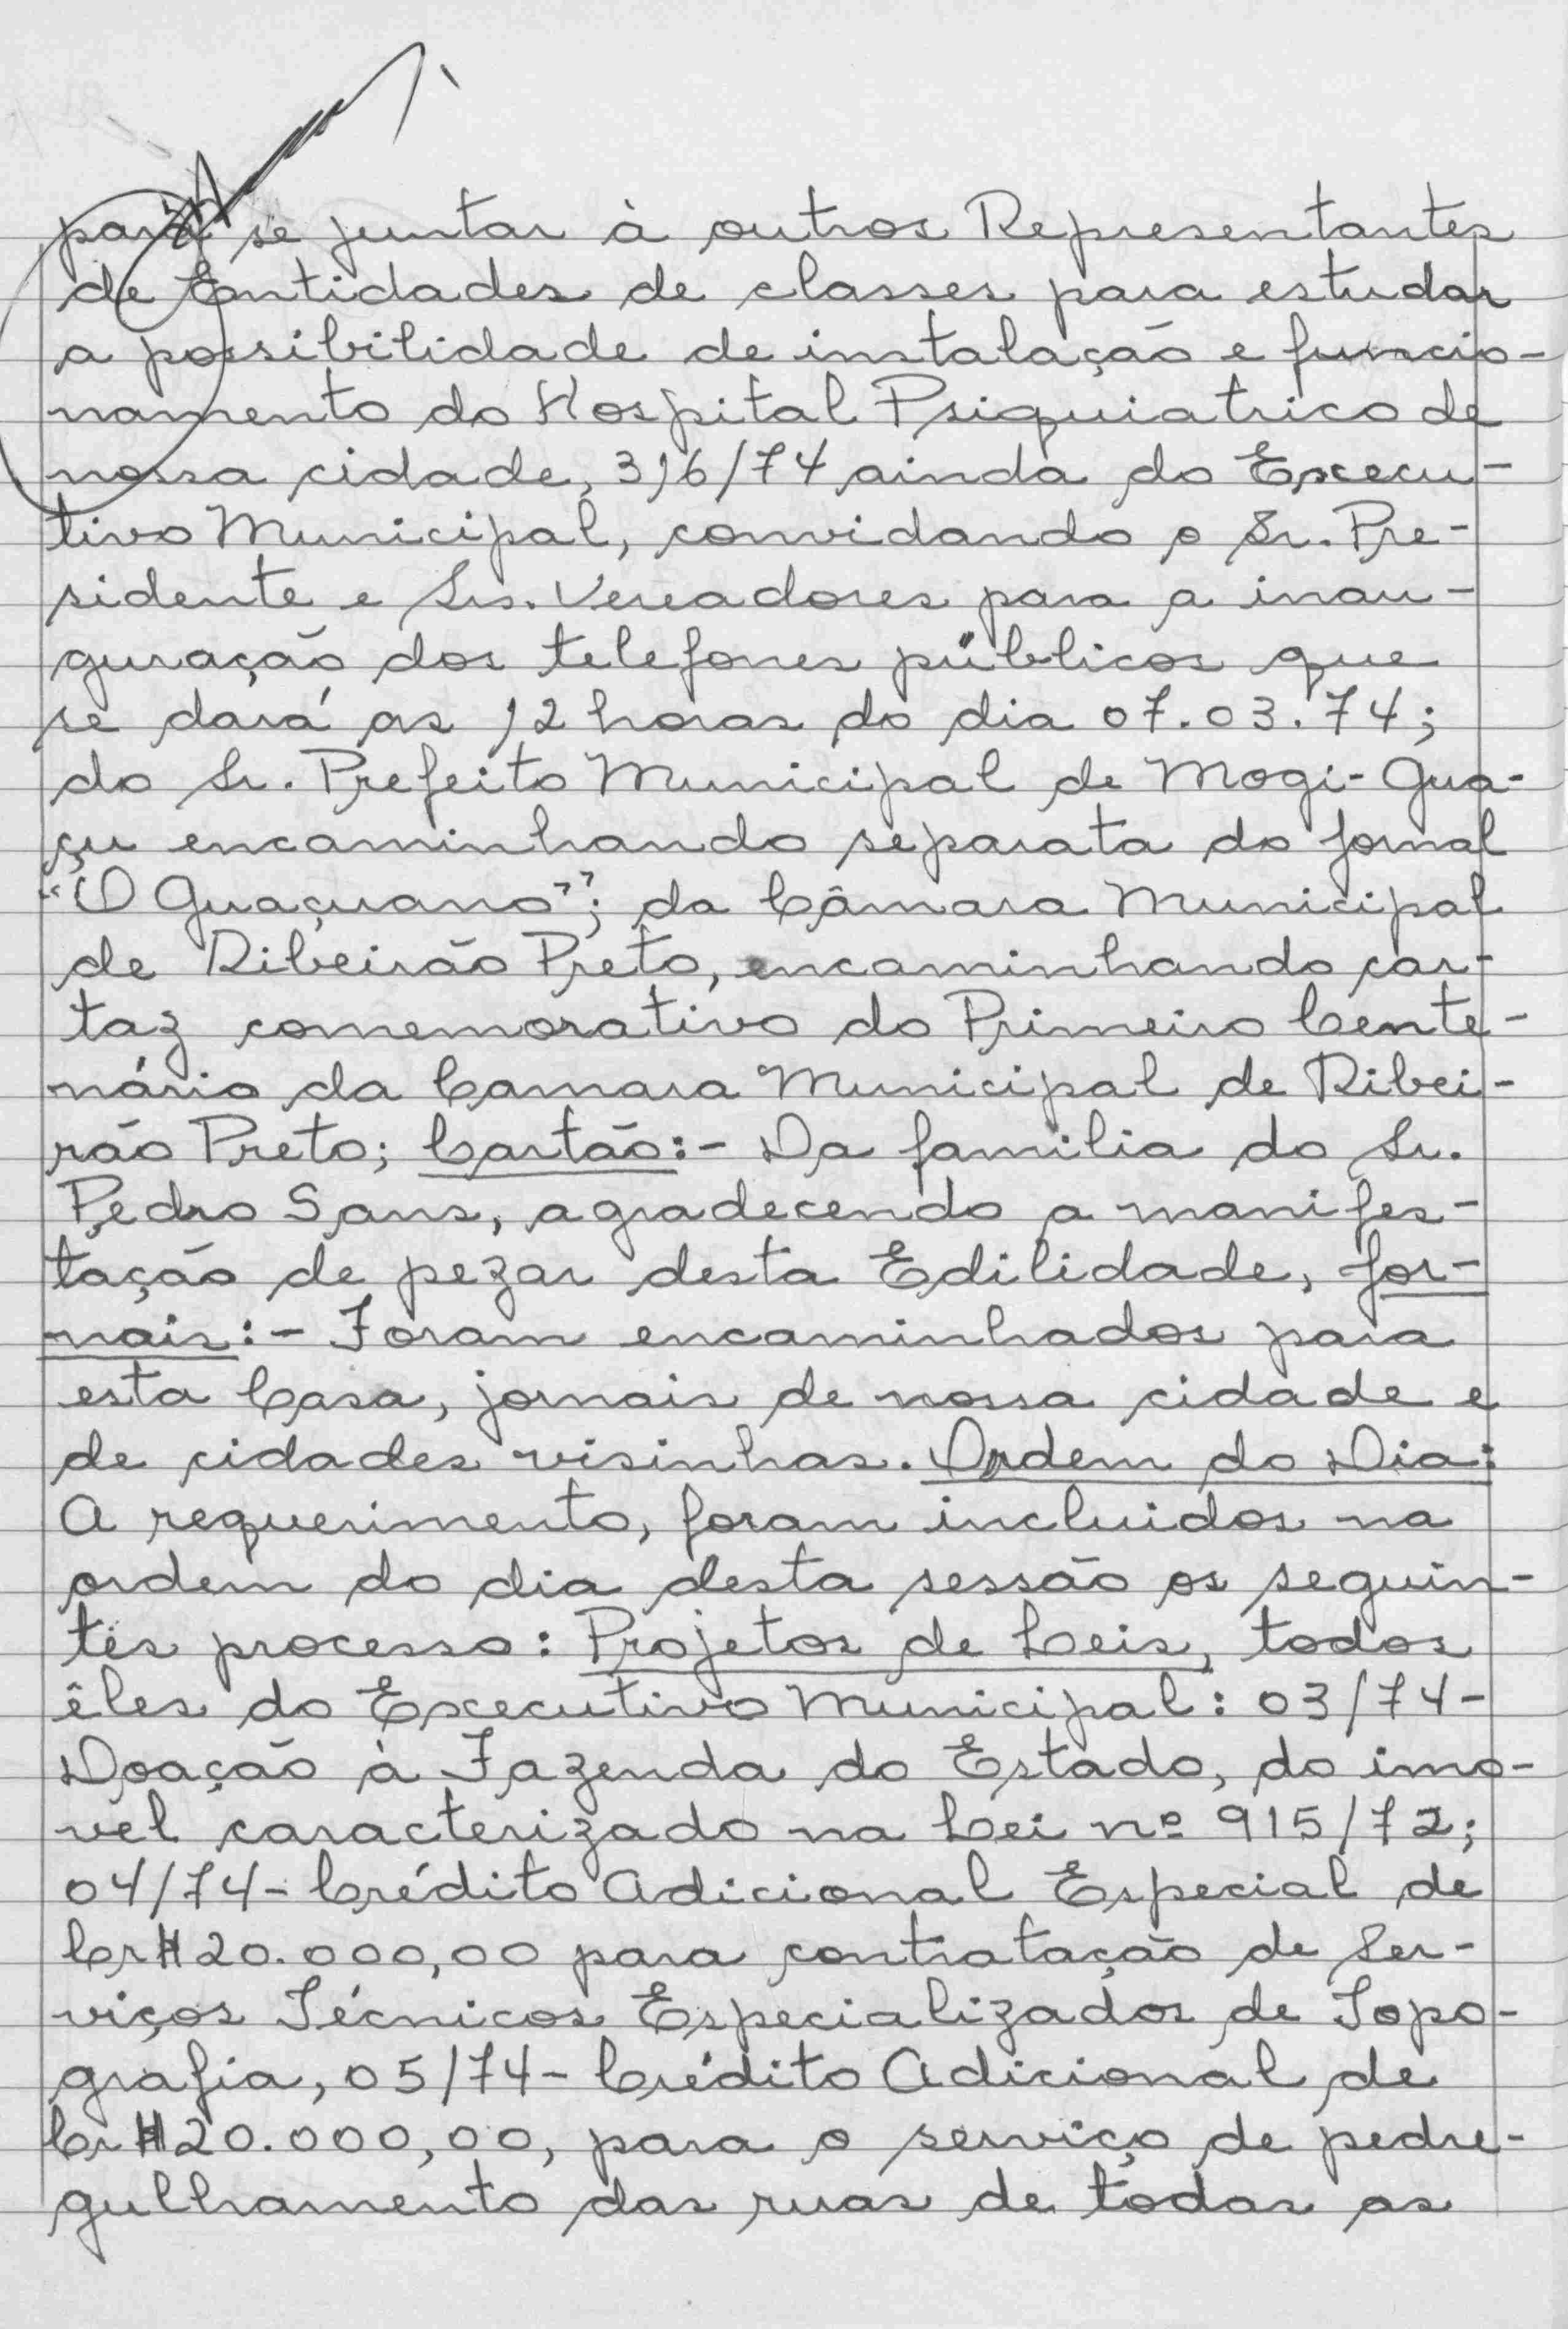 para se juntar à outros Representantes
de Entidades de classes para estudar
a possibilidade de instalação e funcio-
namento do Hospital Psiquiatrico de
nossa cidade, 316/74 ainda do Execu-
tivo Municipal, convidando o Sr. Pre-
sidente e Srs. Vereadores para a inau-
guração dos telefones públicos que
se dará as 12 horas do dia 07.03.74;
do Sr. Prefeito Municipal de Mogi-Gua-
çu encaminhando separata do Jornal
"O Guaçuano"; da Câmara Municipal
de Ribeirão Preto, encaminhando car-
taz comemorativo do Primeiro Cente-
nário da Camara Municipal de Ribei-
rão Preto; Cartão:- Da familia do Sr.
Pedro Sans, agradecendo a manifes-
tação de pezar desta Edilidade, Jor-
nais:- Foram encaminhados para
esta Casa, jornais de nossa cidade e
de cidades visinhas. Ordem do Dia:
A requerimento, foram incluidos na
ordem do dia desta sessão os seguin-
tes processo: Projetos de Leis, todos
êles do Executivo Municipal: 03/74-
Doação à Fazenda do Estado, do imo-
vel caracterizado na Lei nº 915/72;
04/74- Crédito Adicional Especial de
Cr$ 20.000,00 para contratação de Ser-
viços Técnicos Especializados de Topo-
grafia, 05/74- Crédito Adicional de
Cr$ 20.000,00, para o serviço de pedre-
gulhamento das ruas de todas as